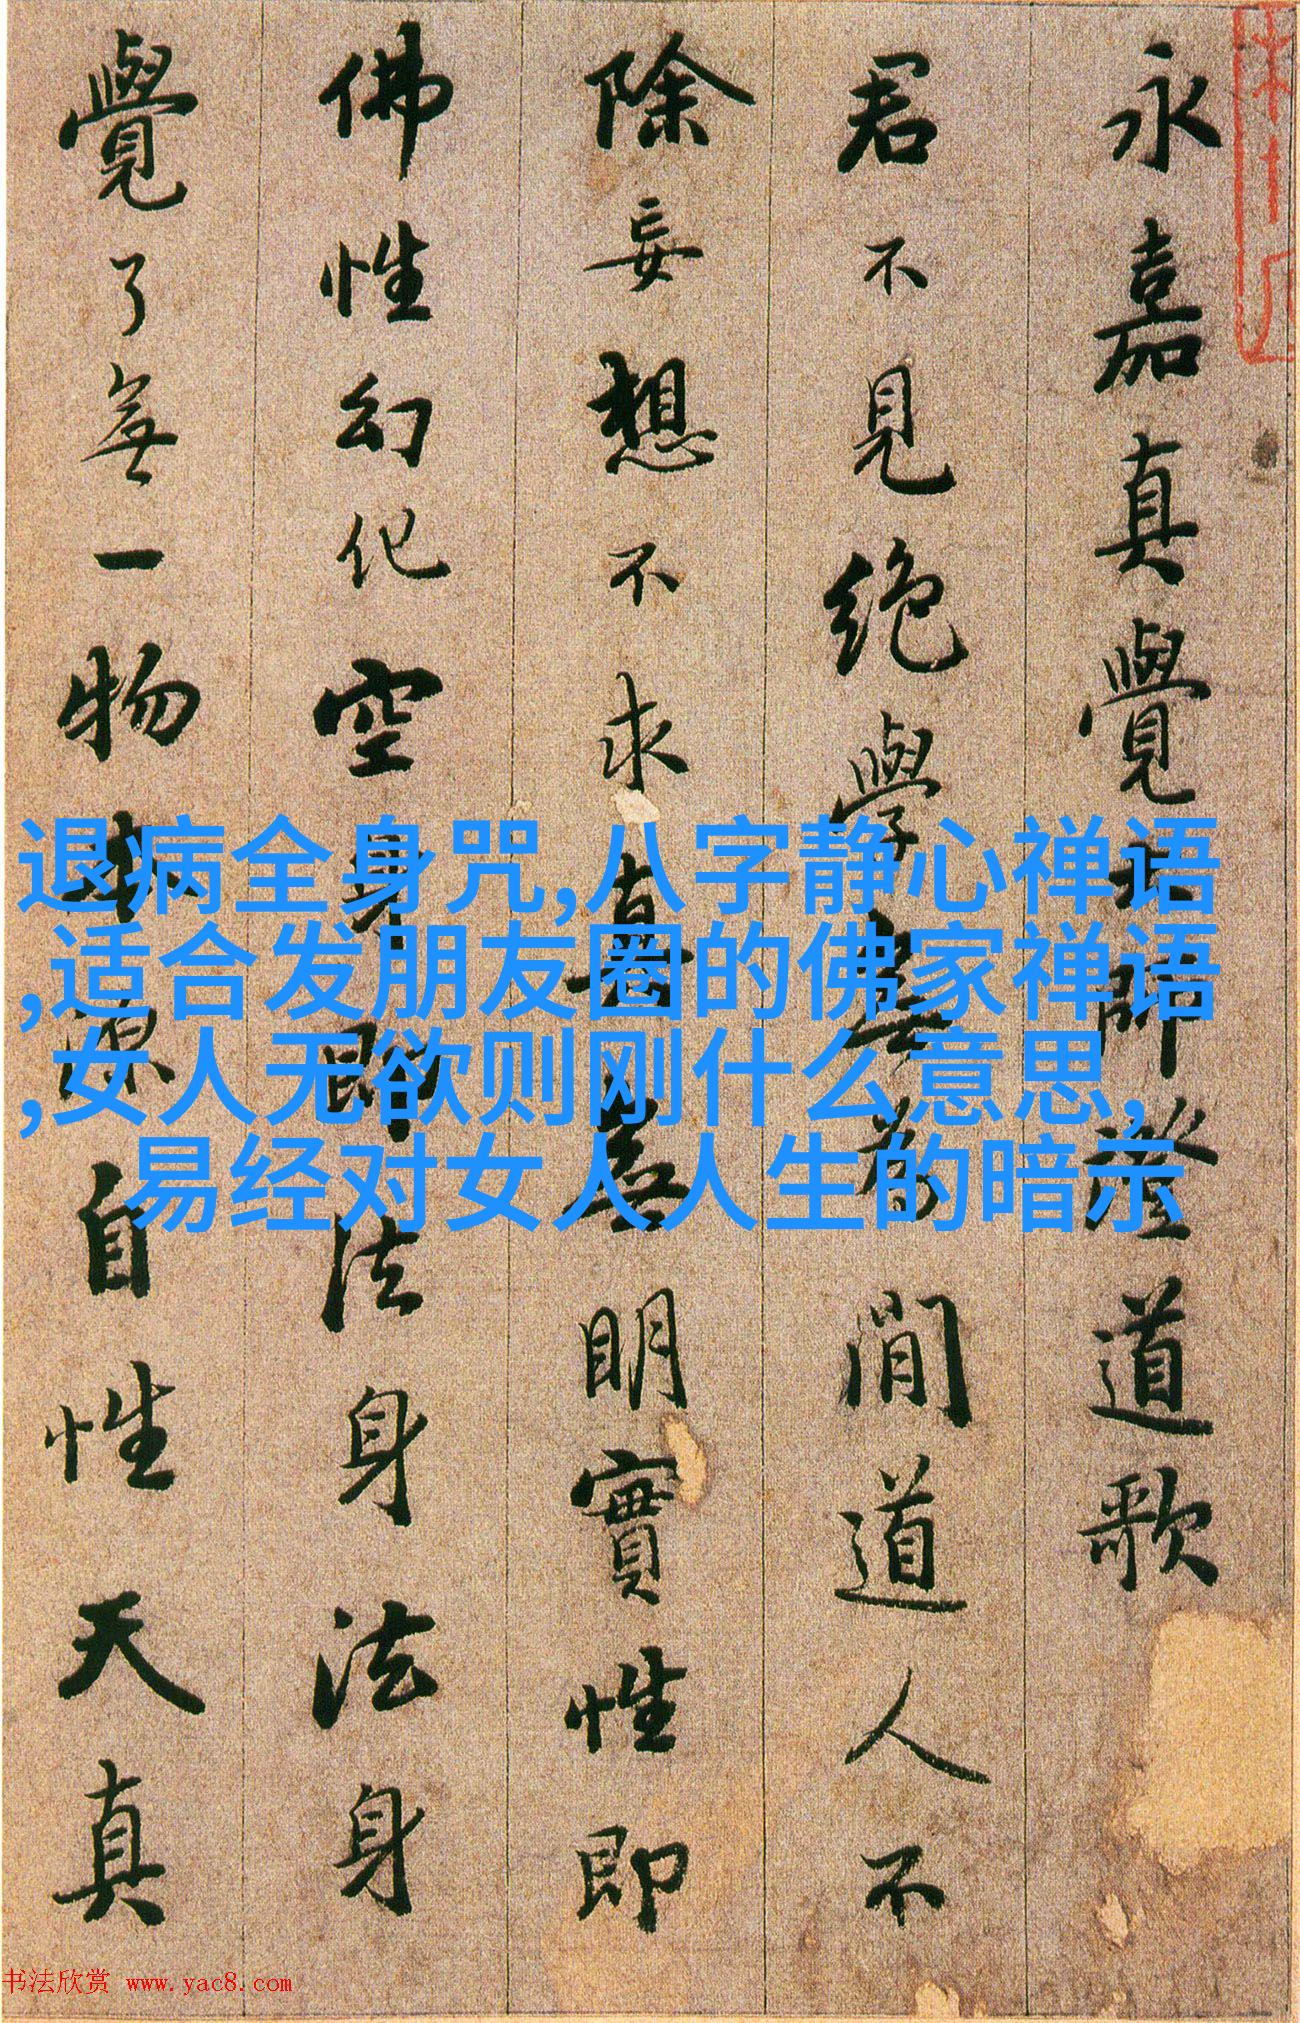 永嘉真覺大師證道歌
君不見絕學無為閒道人不
除妄想不求真無明實性即
佛性幻化空身即法身法身
覺了無一物本源自性天真
退病全身咒,八字静心禅语
,适合发朋友圈的佛家禅语
,女人无欲则刚什么意思,
易经对女人人生的暗示
书法欣赏 www.yac8.com